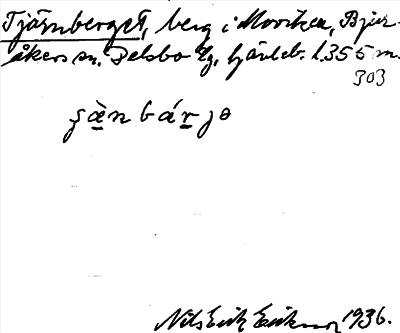 Tjärnberget, berg i Moviken, Bjur-
åkers sn. Delsbo tg, Gävleb. l. 355 m.
303
ʂæ̀nbárjə
Nils Erik Eriksson 1936.